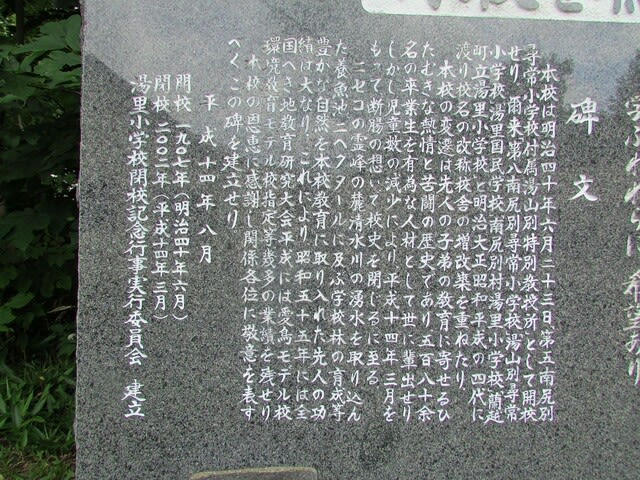 碑文
本校は明治四十年六月二十三日第五南尻別
尋常小学校付属湯山別特別教授所として開校
せり 爾来第八南尻別尋常小学校湯山別尋常
小学校湯里国民学校南尻別村湯里小学校蘭越
町立湯里小学校と明治大正昭和平成の四代に
渡り校名の改称校舎の増改築を重ねたり
本校の変遷は先人の子弟の教育に寄せるひ
たむきな熱情と苦闘の歴史であり五百八十余
名の卒業生を有為な人材として世に輩出せり
しかし児童数の減少により平成十四年三月を
もって断腸の想いで校史を閉じるに至る
ニセコの霊峰の麓清水川の湧水を取り込ん
た養魚池二ヘクタールに及ぶ学校林の育成等
豊かな自然を本校教育に取り入れた先人の功
績は大なり これにより昭和五十五年には全
国へき地教育研究大会平成には愛鳥モデル校
環境教育モデル校指定等幾多の業績を残せり
本校の恩恵に感謝し関係各位に敬意を表す
べくこの碑を建立せり
平成十四年八月
開校 一九〇七年(明治四十年六月)
閉校 二〇〇二年(平成十四年三月)
湯里小学校閉校記念行事実行委員会 建立